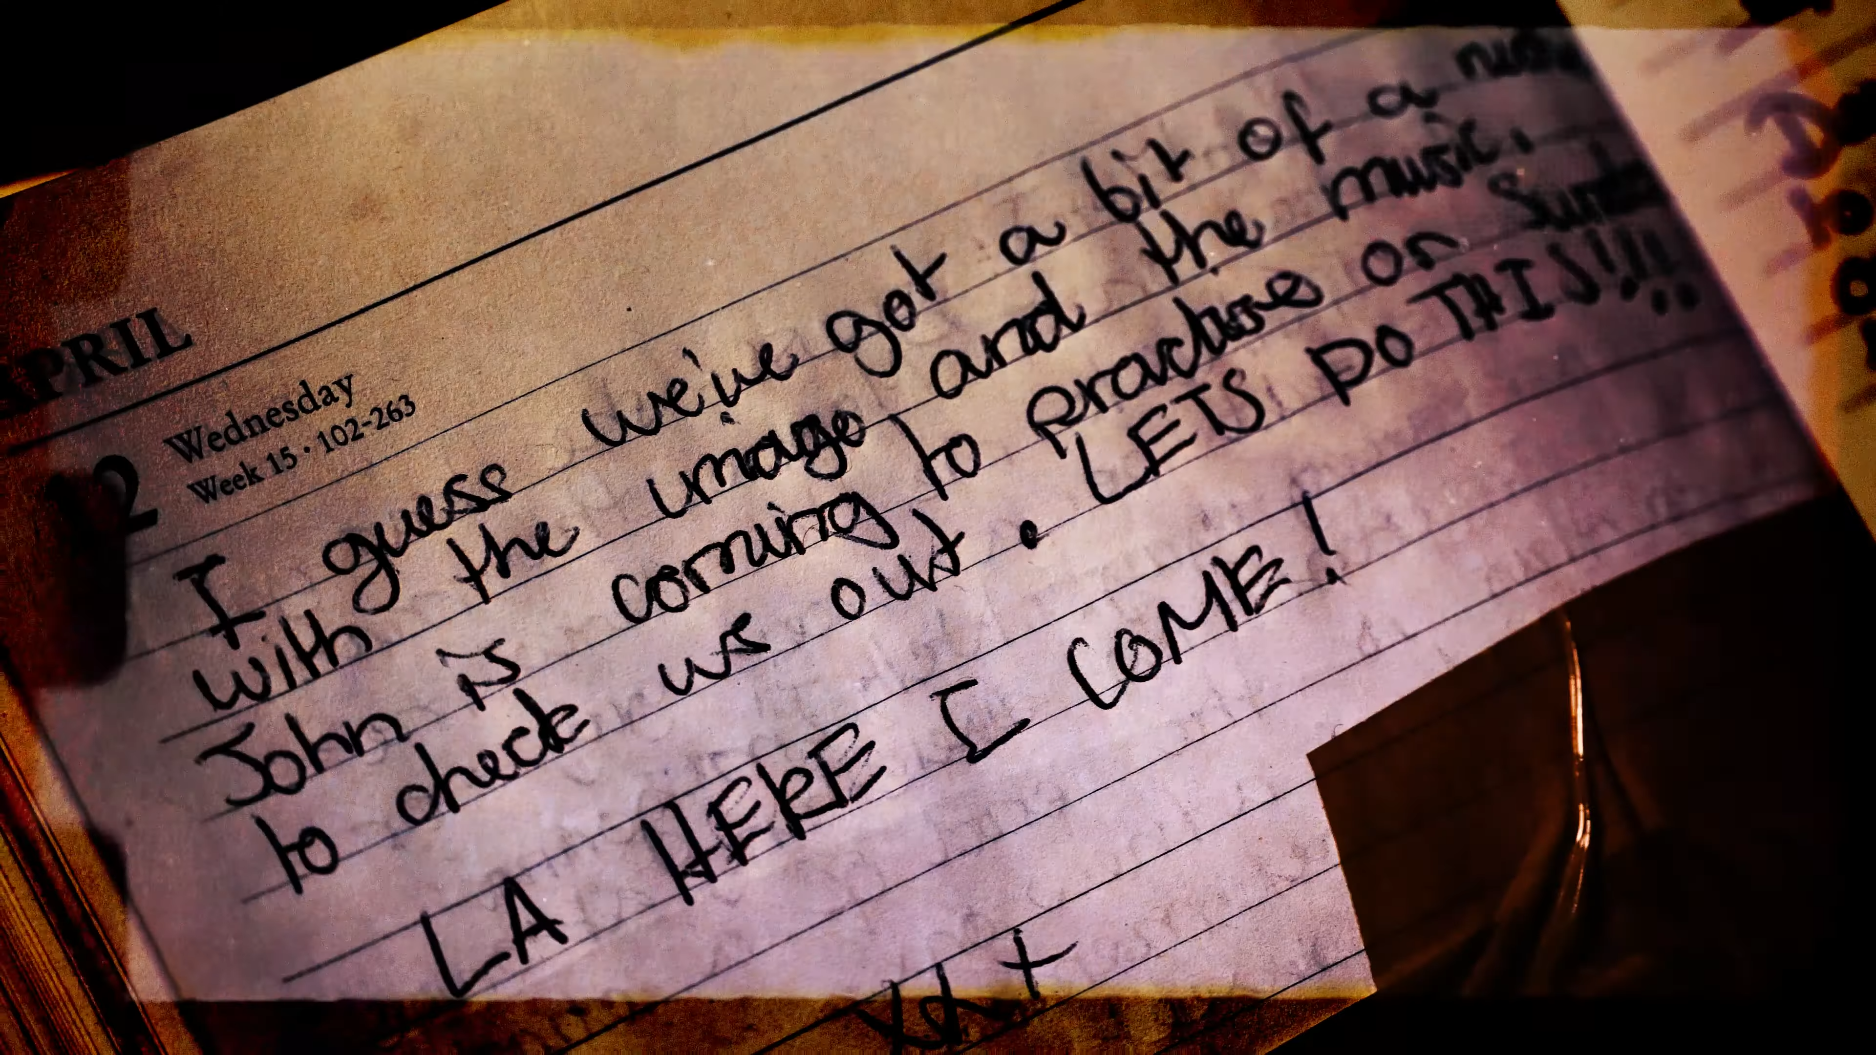 APRIL
12 Wednesday
Week 15 • 102-263
I guess we've got a bit of a
with the image and the music.
John is coming to practise on
to check us out. LETS DO THIS!!!
LA HERE I COME!